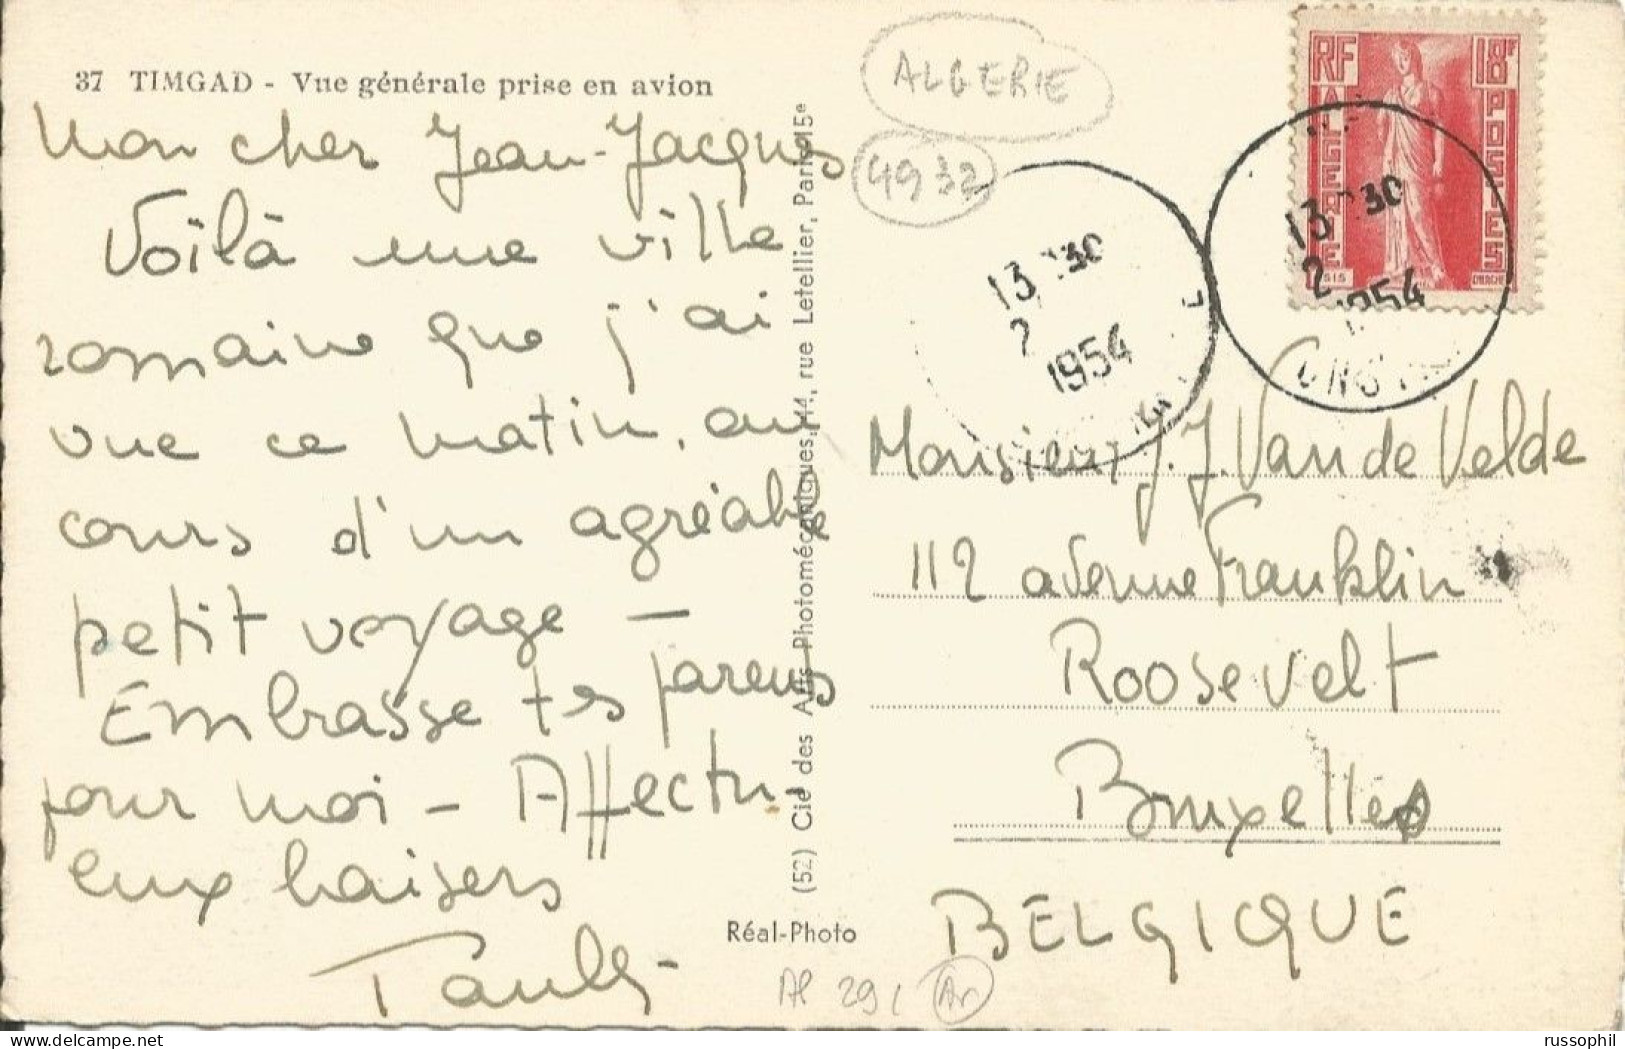 37 TIMGAD - Vue générale prise en avion
Mon cher Jean-Jacques
Voilà une ville
romaine que j'ai
vue ce matin, au
cours d'un agréable
petit voyage —
Embrasse tes parents
pour moi — Affectu-
eux baisers
(52) Cie des Arts Photomécaniques, 44, rue Letellier, Paris-15e
Réal-Photo
ALGERIE
4932
RF 18F
ALGERIE
POSTES
13 30
2
1954
13 30
2
1954
Monsieur J. J. Van de Velde
112 avenue Franklin
Roosevelt
Bruxelles
BELGIQUE
Al 29
Ar
russophil
www.delcampe.net